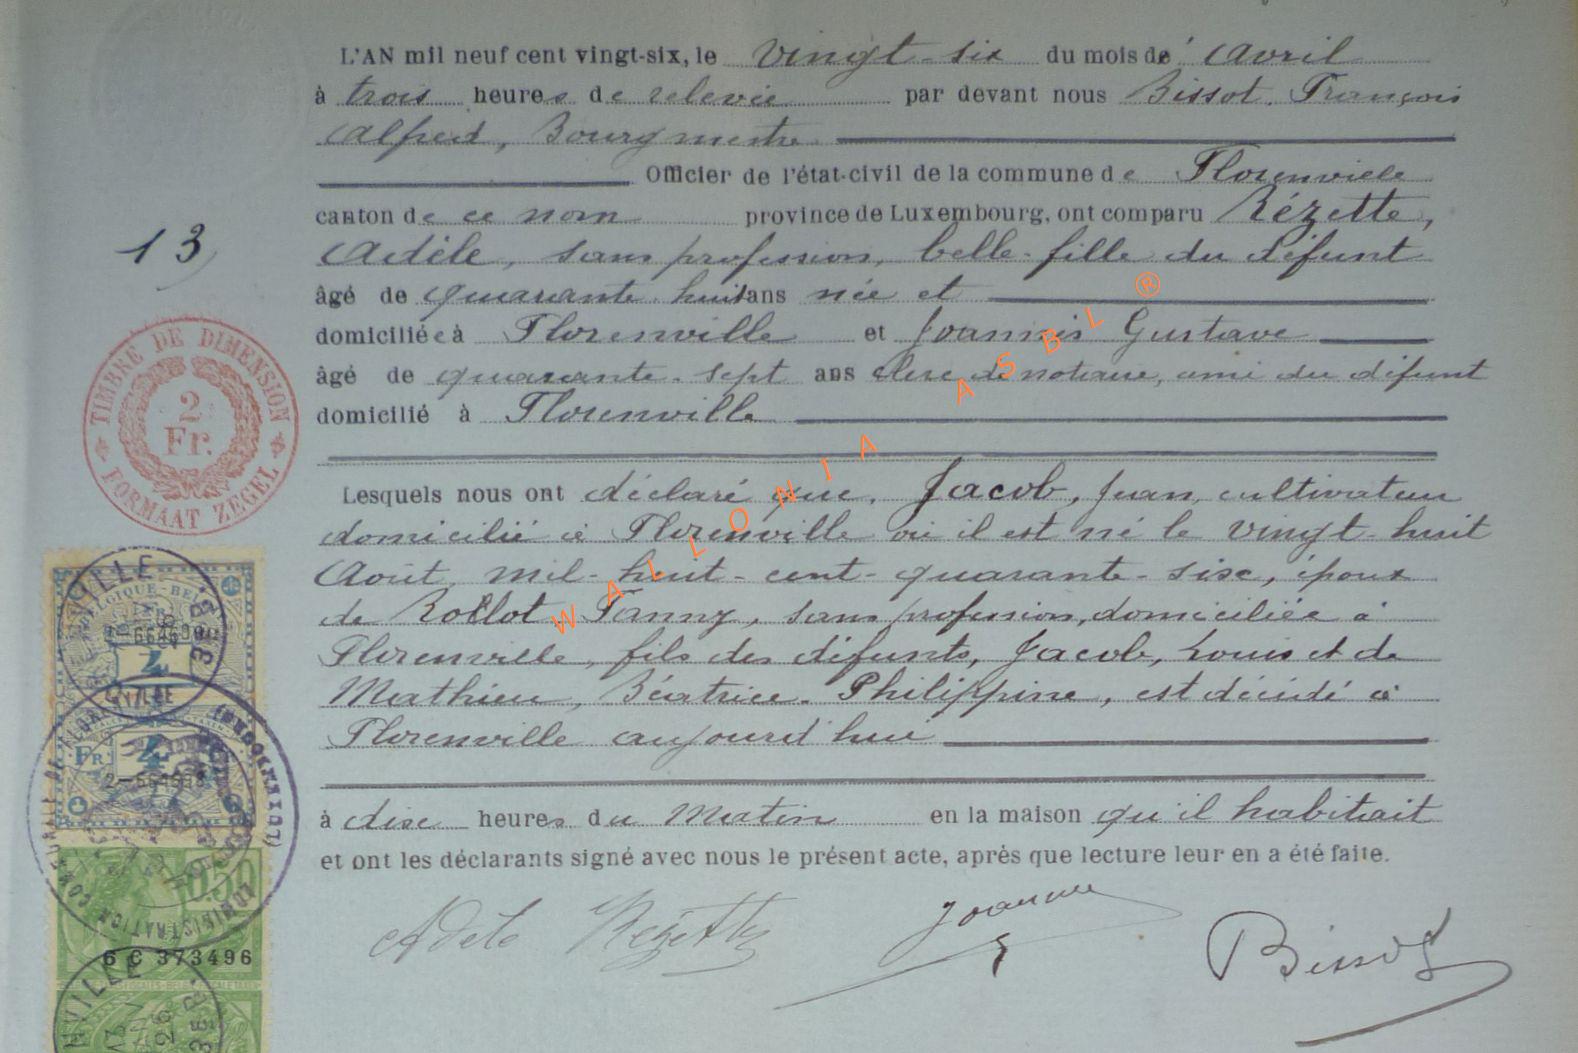 L'AN mil neuf cent vingt-six, le vingt-six du mois de Avril
à trois heures de relevée par devant nous Bissot, François
Alfred, Bourgmestre
Officier de l'état-civil de la commune de Florenville
canton de ce nom province de Luxembourg, ont comparu Rézette,
Adèle, sans profession, belle-fille du défunt
âgé de quarante-huit ans née et
domiciliée à Florenville et Joannis Gustave
âgé de quarante-sept ans clerc de notaire, ami du défunt
domicilié à Florenville
13
Lesquels nous ont déclaré que, Jacob, Jean, cultivateur
domicilié à Florenville où il est né le vingt-huit
Août mil-huit-cent-quarante-six, époux
de Rollot Fanny, sans profession, domiciliée à
Florenville, fils des défunts, Jacob, Louis et de
Mathieu, Béatrice-Philippine, est décédé à
Florenville aujourd'hui
à dix heures du Matin en la maison qu'il habitait
et ont les déclarants signé avec nous le présent acte, après que lecture leur en a été faite.
Adèle Rézette
Joannis
Bissot
TIMBRE DE DIMENSION
2
Fr.
FORMAAT ZEGEL
BELGIQUE-BEL
4
FR 4
0.50
6 C 373496
ADMINISTRATION COMMUNALE DE FLORENVILLE
(LUXEMBOURG)
WALLONIA ASBL ®